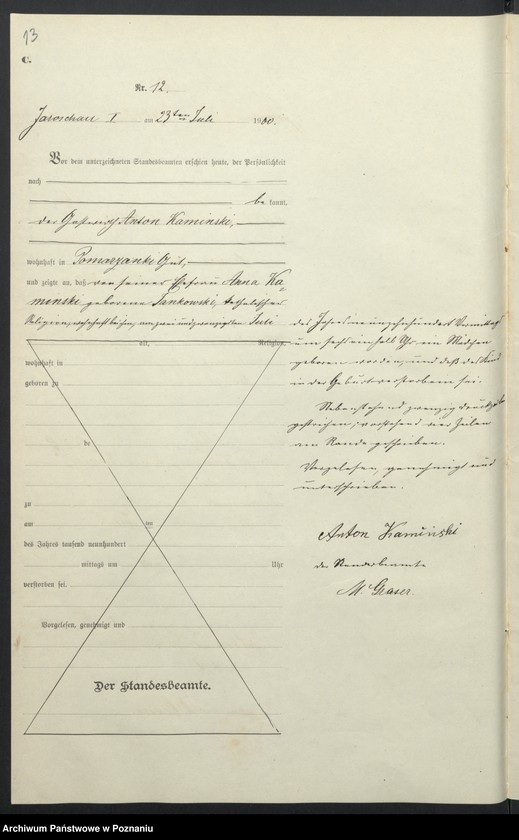 13
C.
Nr. 12.
Jaroschau I am 23ten Juli 1900.
Vor dem unterzeichneten Standesbeamten erschien heute, der Persönlichkeit
nach
be kannt,
der Gastwirth Anton Kaminski,
wohnhaft in Pomarzanki Gut,
und zeigte an, daß von seiner Ehefrau Anna Ka
minski geborene Jankowski, katholischer
Religion, wohnhaft bei ihm, am zwei und zwanzigsten Juli
alt, Religion,
wohnhaft in
geboren zu
de
zu
am ten
des Jahres tausend neunhundert
mittags um Uhr
verstorben sei.
Vorgelesen, genehmigt und
Der Standesbeamte.
des Jahres neunzehnhundert Vormittags
um sechs einhalb Uhr ein Mädchen
geboren worden, und daß das Kind
in der Geburt verstorben sei.
Nebenstehend zwanzig Druckzeilen
gestrichen, vorstehend vier Zeilen
am Rande geschrieben.
Vorgelesen, genehmigt und
unterschrieben.
Anton Kaminski
der Standesbeamte
Archiwum Państwowe w Poznaniu